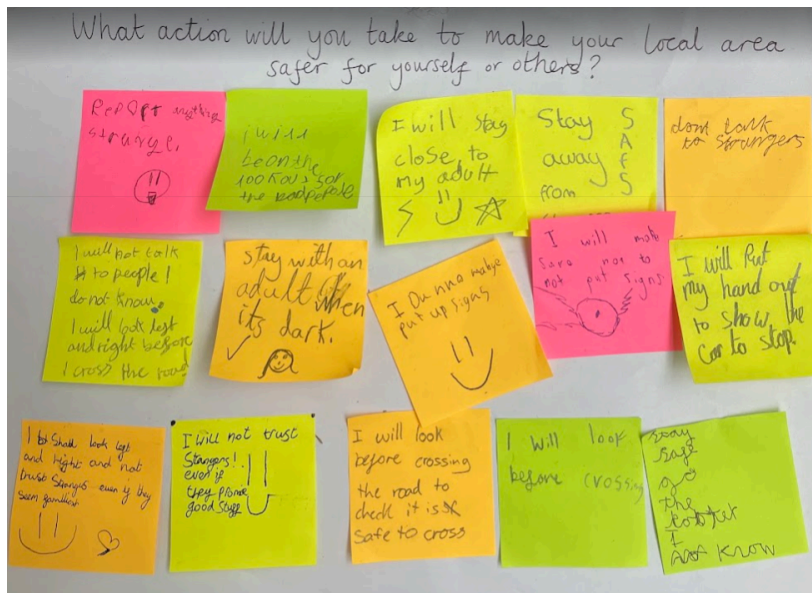 What action will you take to make your local area
safer for yourself or others?
Report anything
strange.
i will
be on the
for
the
I will stay
close to
my adult
Stay
away
from
SAFS
dont talk
to strangers
I will not talk
to people I
do not know.
I will look left
and right before
I cross the road
stay with an
adult when
its dark.
I Dunno maybe
put up signs
I will make
sure not to
not put signs
I will Put
my hand out
to show the
Car to stop.
I Shall look left
and right and not
trust Strangers even if they
seem familiar
I will not trust
Strangers!
even if
they promise
good stuff
I will look
before crossing
the road to
check it is
safe to cross
I will look
before crossing
stay
safe
go
the
I
know